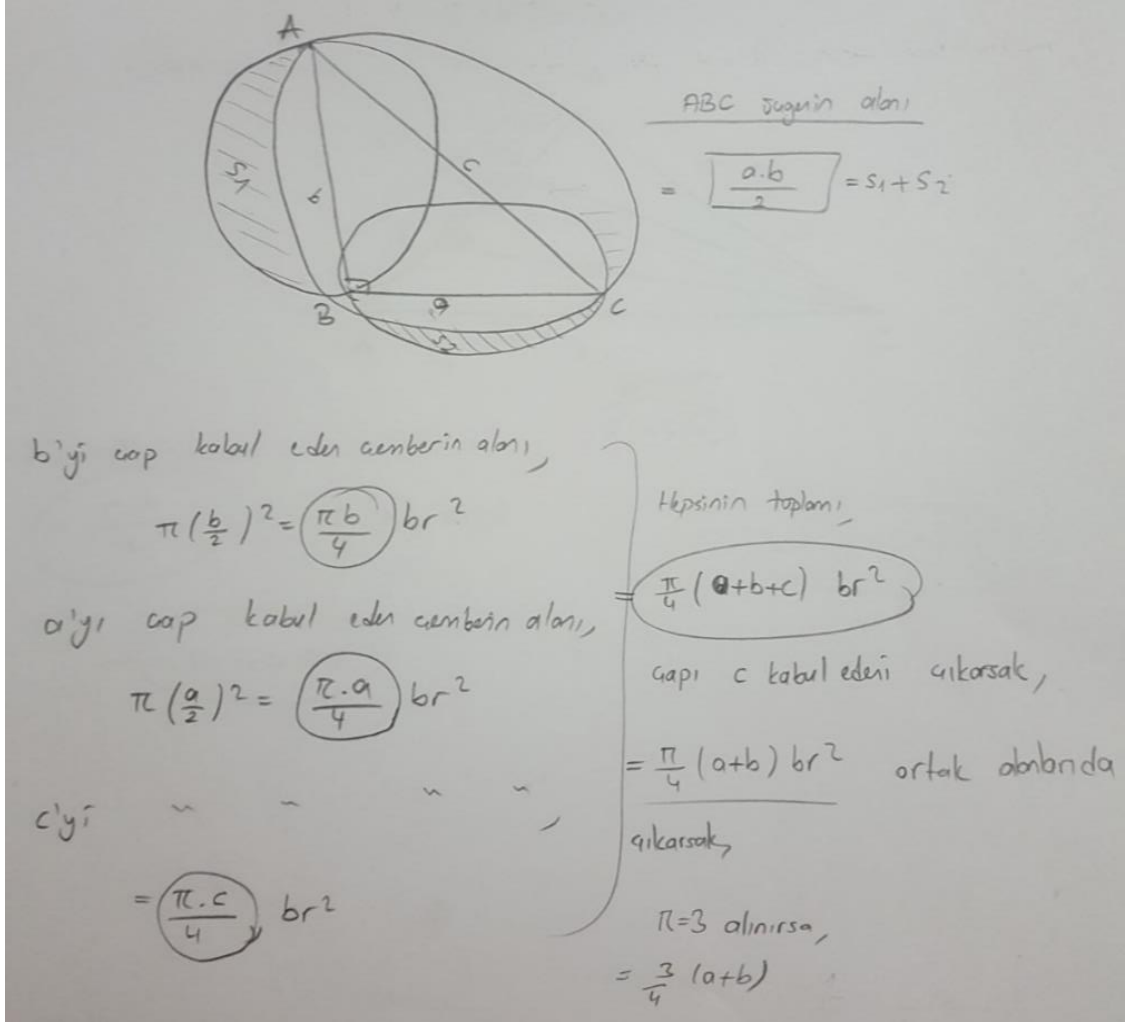 A
S1
b
c
B
a
C
S2
ABC üçgenin alanı
= a.b/2 = S1 + S2
b'yi çap kabul eden çemberin alanı,
π(b/2)² = πb/4 br²
a'yı çap kabul eden çemberin alanı,
π(a/2)² = π.a/4 br²
c'yi " " " " ,
= π.c/4 br²
Hepsinin toplamı,
= π/4 (a+b+c) br²
çapı c kabul edeni çıkarsak,
= π/4 (a+b) br² ortak alanlarıda
çıkarsak,
π=3 alınırsa,
= 3/4 (a+b)